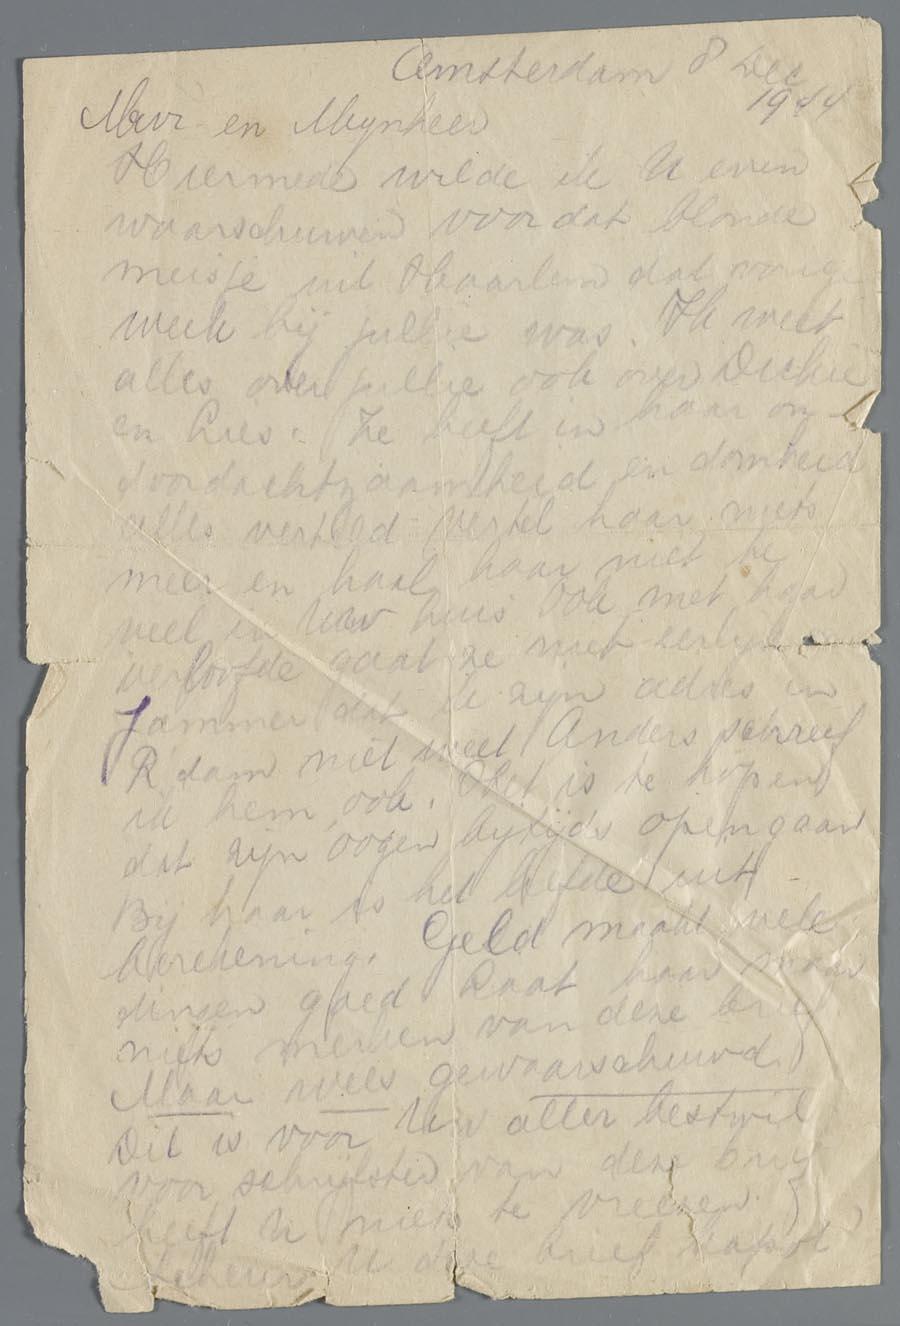 Amsterdam 8 Dec
1944
Mevr en Mynheer
Hiermede wilde ik U even
waarschuwen voor dat blonde
meisje uit Haarlem dat vorige
week bij jullie was. Ik weet
alles over jullie ook over Dickie
en Lies. Ze heeft in haar on
doordachtzaamheid en domheid
alles verteld vertel haar niets
meer en haal haar niet te
veel in Uw huis Ook met haar
verloofde gaat ze niet eerlijk
Jammer dat ik zijn adres in
R'dam niet weet Anders schreef
ik hem ook. Het is te hopen
dat zijn oogen bytijds opengaan
Bij haar is het liefde uit
berekening. Geld maakt vele
dingen goed Laat haar maar
niets merken van deze brief
Maar wees gewaarschuwd
Dit is voor Uw aller bestwil
voor schrijfster van deze brief
heeft U niets te vreezen.
Scheur U deze brief kapot